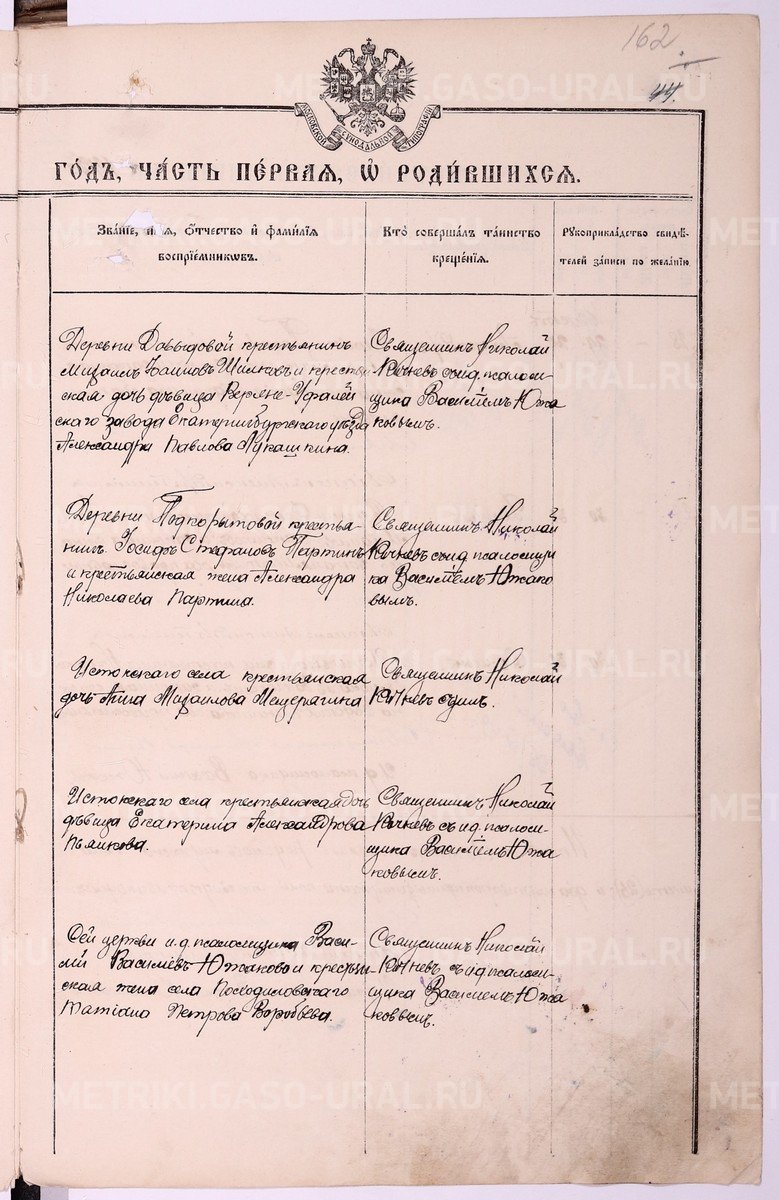 162
44.
МОСКОВСКОЙ СѴНОДАЛЬНОЙ ТИПОГРАФІИ
ГО́ДЪ, ЧА́СТЬ ПЕ́РВАЯ, Ѡ҆ РОДИ́ВШИХСЯ.
Зва́нїе, и́мя, о́тчество и҆ фами́лїя
воспрїе́мникѡвъ.
Кто̀ соверша́лъ та́инство
креще́нїя.
Рꙋкоприкла́дство свидѣ́-
телей за́писи по жела́нїю.
Деревни Давыдовой крестьянинъ
Михаилъ Іоанновъ и кресть
янская дочь дѣвица Верхне-Уфалей
скаго завода Екатеринбургскаго уѣзда
Александра Павлова Лукашкина.
Священникъ Николай
съ и.д. псаломщи
щика Василіемъ Южа
ковымъ.
Деревни Подкорытовой крестья-
нинъ Іосифъ Стефановъ Партинъ
и крестьянская жена Александра
Николаева Партина.
Священникъ Николай
съ и.д. псаломщи
ка Василіемъ Южако
вымъ.
Истокскаго села крестьянская
дочь Анна Михаилова Мещерягина
Священникъ Николай
Истокскаго села крестьянская дочь
дѣвица Екатерина Александрова
Пьянкова.
Священникъ Николай
съ и.д. псалом-
щика Василіемъ Южа
ковымъ.
Сей церкви и.д. псаломщика Васи-
лій Василіевъ Южаковъ и крестьян-
ская жена села
Татіана Петрова Воробьева.
Священникъ Николай
съ и.д. псалом-
щика Василіемъ Южа
ковымъ.
METRIKI.GASO-URAL.RU